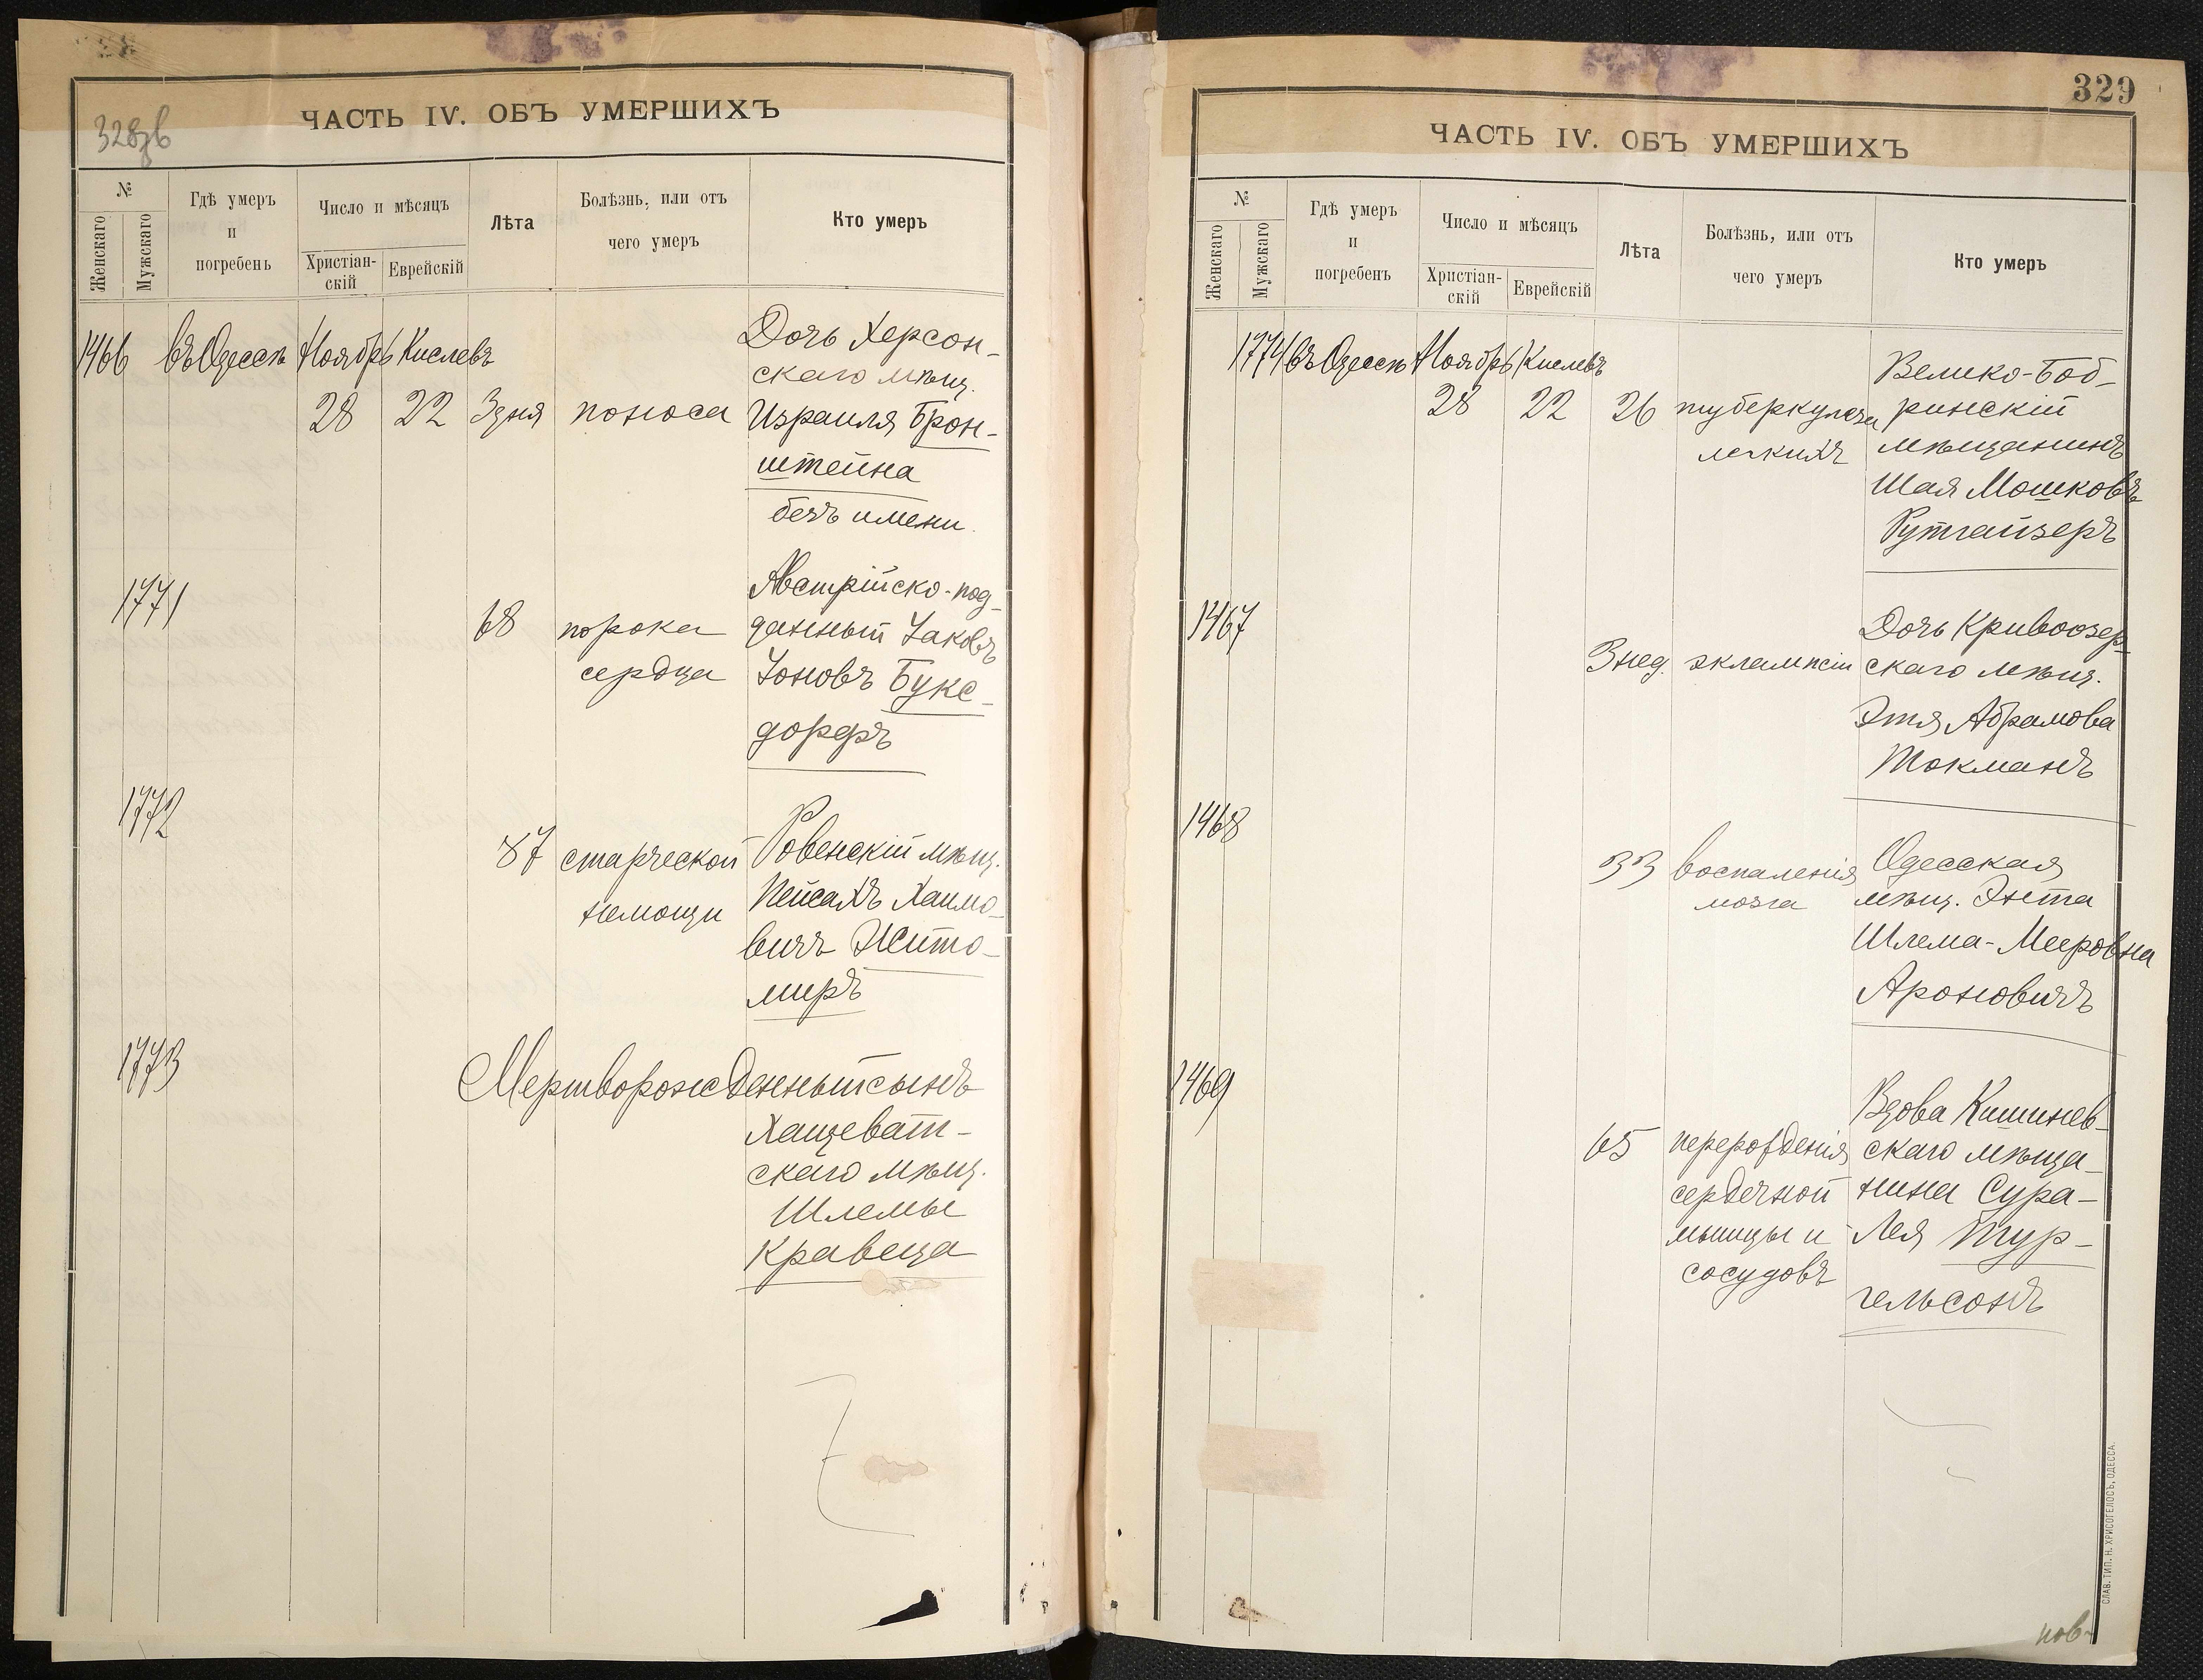 328зв
ЧАСТЬ IV. ОБЪ УМЕРШИХЪ
№
Женскаго
Мужскаго
Гдѣ умеръ
и
погребенъ
Число и мѣсяцъ
Христіан-
скій
Еврейскій
Лѣта
Болѣзнь, или отъ
чего умеръ
Кто умеръ
1466 въ Одессѣ Ноябрь Кислевъ
28 22 3 дня поноса
Дочь Херсон-
скаго мѣщ.
Израиля Брон-
штейна
безъ имени
1771
68 порока
сердца
Австрійско-под-
данный Іаковъ
Іоновъ Букс-
дорфъ
1772
87 старческой
немощи
Ровенскій мѣщ.
Пейсахъ Хаимо-
вичъ Жито-
миръ
1773
Мертворожденный сынъ
Хащеват-
скаго мѣщ.
Шлемы
Кравеца
329
ЧАСТЬ IV. ОБЪ УМЕРШИХЪ
№
Женскаго
Мужскаго
Гдѣ умеръ
и
погребенъ
Число и мѣсяцъ
Христіан-
скій
Еврейскій
Лѣта
Болѣзнь, или отъ
чего умеръ
Кто умеръ
1774 въ Одессѣ Ноябрь Кислевъ
28 22 26 туберкулеза
легкихъ
Велико-Боб-
ринскій
мѣщанинъ
Шая Мошковъ
Рутгайзеръ
1467
3 нед. эклампсіи
Дочь Кривоозер-
скаго мѣщ.
Этя Абрамова
Токманъ
1468
33 воспаленія
мозга
Одесская
мѣщ. Энта
Шлема-Мееровна
Ароновичъ
1469
65 перерожденія
сердечной
мышцы и
сосудовъ
Вдова Кишинев-
скаго мѣща-
нина Сура-
Лея Тур-
гельсонъ
СЛАВ. ТИП. Н. ХРИСОГЕЛОСЪ, ОДЕССА.